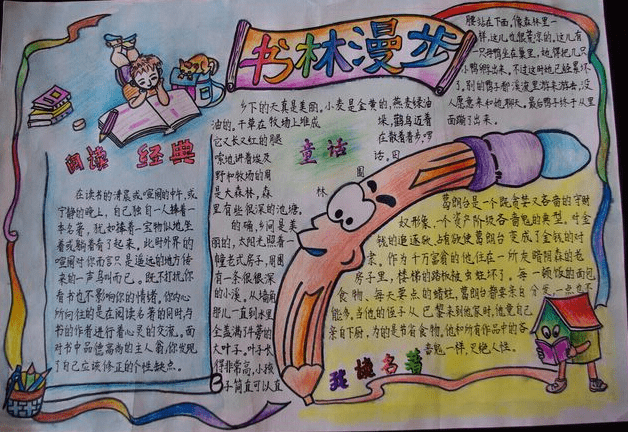 书林漫步
阅读 经典
在读书的清晨或喧闹的中午,或
宁静的晚上,自己独自一人捧着一
本名著,犹如捧着一宝物似地,坐
着或躺着看了起来,此时外界的
喧闹对你而言只是遥远的地方传
来的一声鸟叫而已。既不打扰你
看书也不影响你的情绪,你内心
所向往的是在阅读名著的同时与
书的作者进行着心灵的交流,面
对书中品德高尚的主人翁,你发现
了自己应该修正的个性缺点。
童话
乡下的天真是美丽。小麦是金黄的,燕麦绿油
油的。干草在牧场上堆成
垛,鹳鸟迈着
它又长又红的腿
在散着步,啰
嗦地讲着埃及
话。田
野和牧场的周
围
是大森林,森
林
里有些很深的池塘。
的确,乡间是美
丽的,太阳光照着一
幢老式房子,周围
有一条很深
的小溪。从墙角
那儿一直到水里,
全盖满了牛蒡的
大叶子。叶子长
得非常高,小孩
子简直可以直
腰站在下面,像森林里一
样,这儿也很荒凉的。这儿有
一只母鸭坐在巢里,她得把几只
小鸭孵出来。不过这时她已经累坏
了。别的鸭子都在溪流里游来游去,没
人愿意来和她聊天。最后鸭子终于从里
面蹦了出来。
我读名著
葛朗台是一个既贪婪又吝啬的守财
奴形象,一个资产阶级吝啬鬼的典型。对金
钱的追逐欲、占有欲使葛朗台变成了金钱的对
家,作为千万富翁的他,住在一所灰暗阴森的老
房子里,楼梯的踏板被虫蛀坏了。每一顿饭的面包
食物、每天要点的蜡烛,葛朗台都要亲自分发,一点也不
能多,当他的侄子从巴黎来到他家时,他竟自己
亲自下厨,为的是节省食物。他和所有作品中的吝
啬鬼一样,灭绝人性。